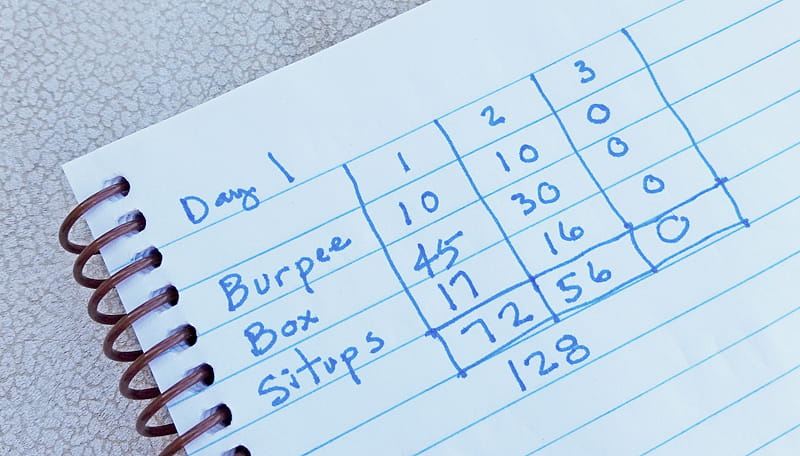 Day 1 1 2 3
Burpee 10 10 0
Box 45 30 0
Situps 17 16 0
72 56 0
128